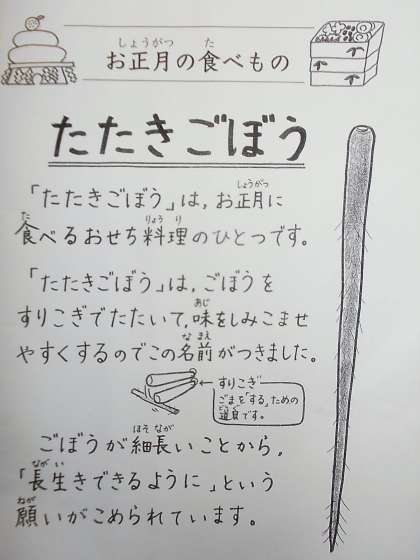 お正月の食べもの
たたきごぼう
「たたきごぼう」は,お正月に
食べるおせち料理のひとつです。
「たたきごぼう」は,ごぼうを
すりこぎでたたいて,味をしみこませ
やすくするのでこの名前がつきました。
すりこぎ
ごまを「する」ための
道具です。
ごぼうが細長いことから,
「長生きできるように」という
願いがこめられています。